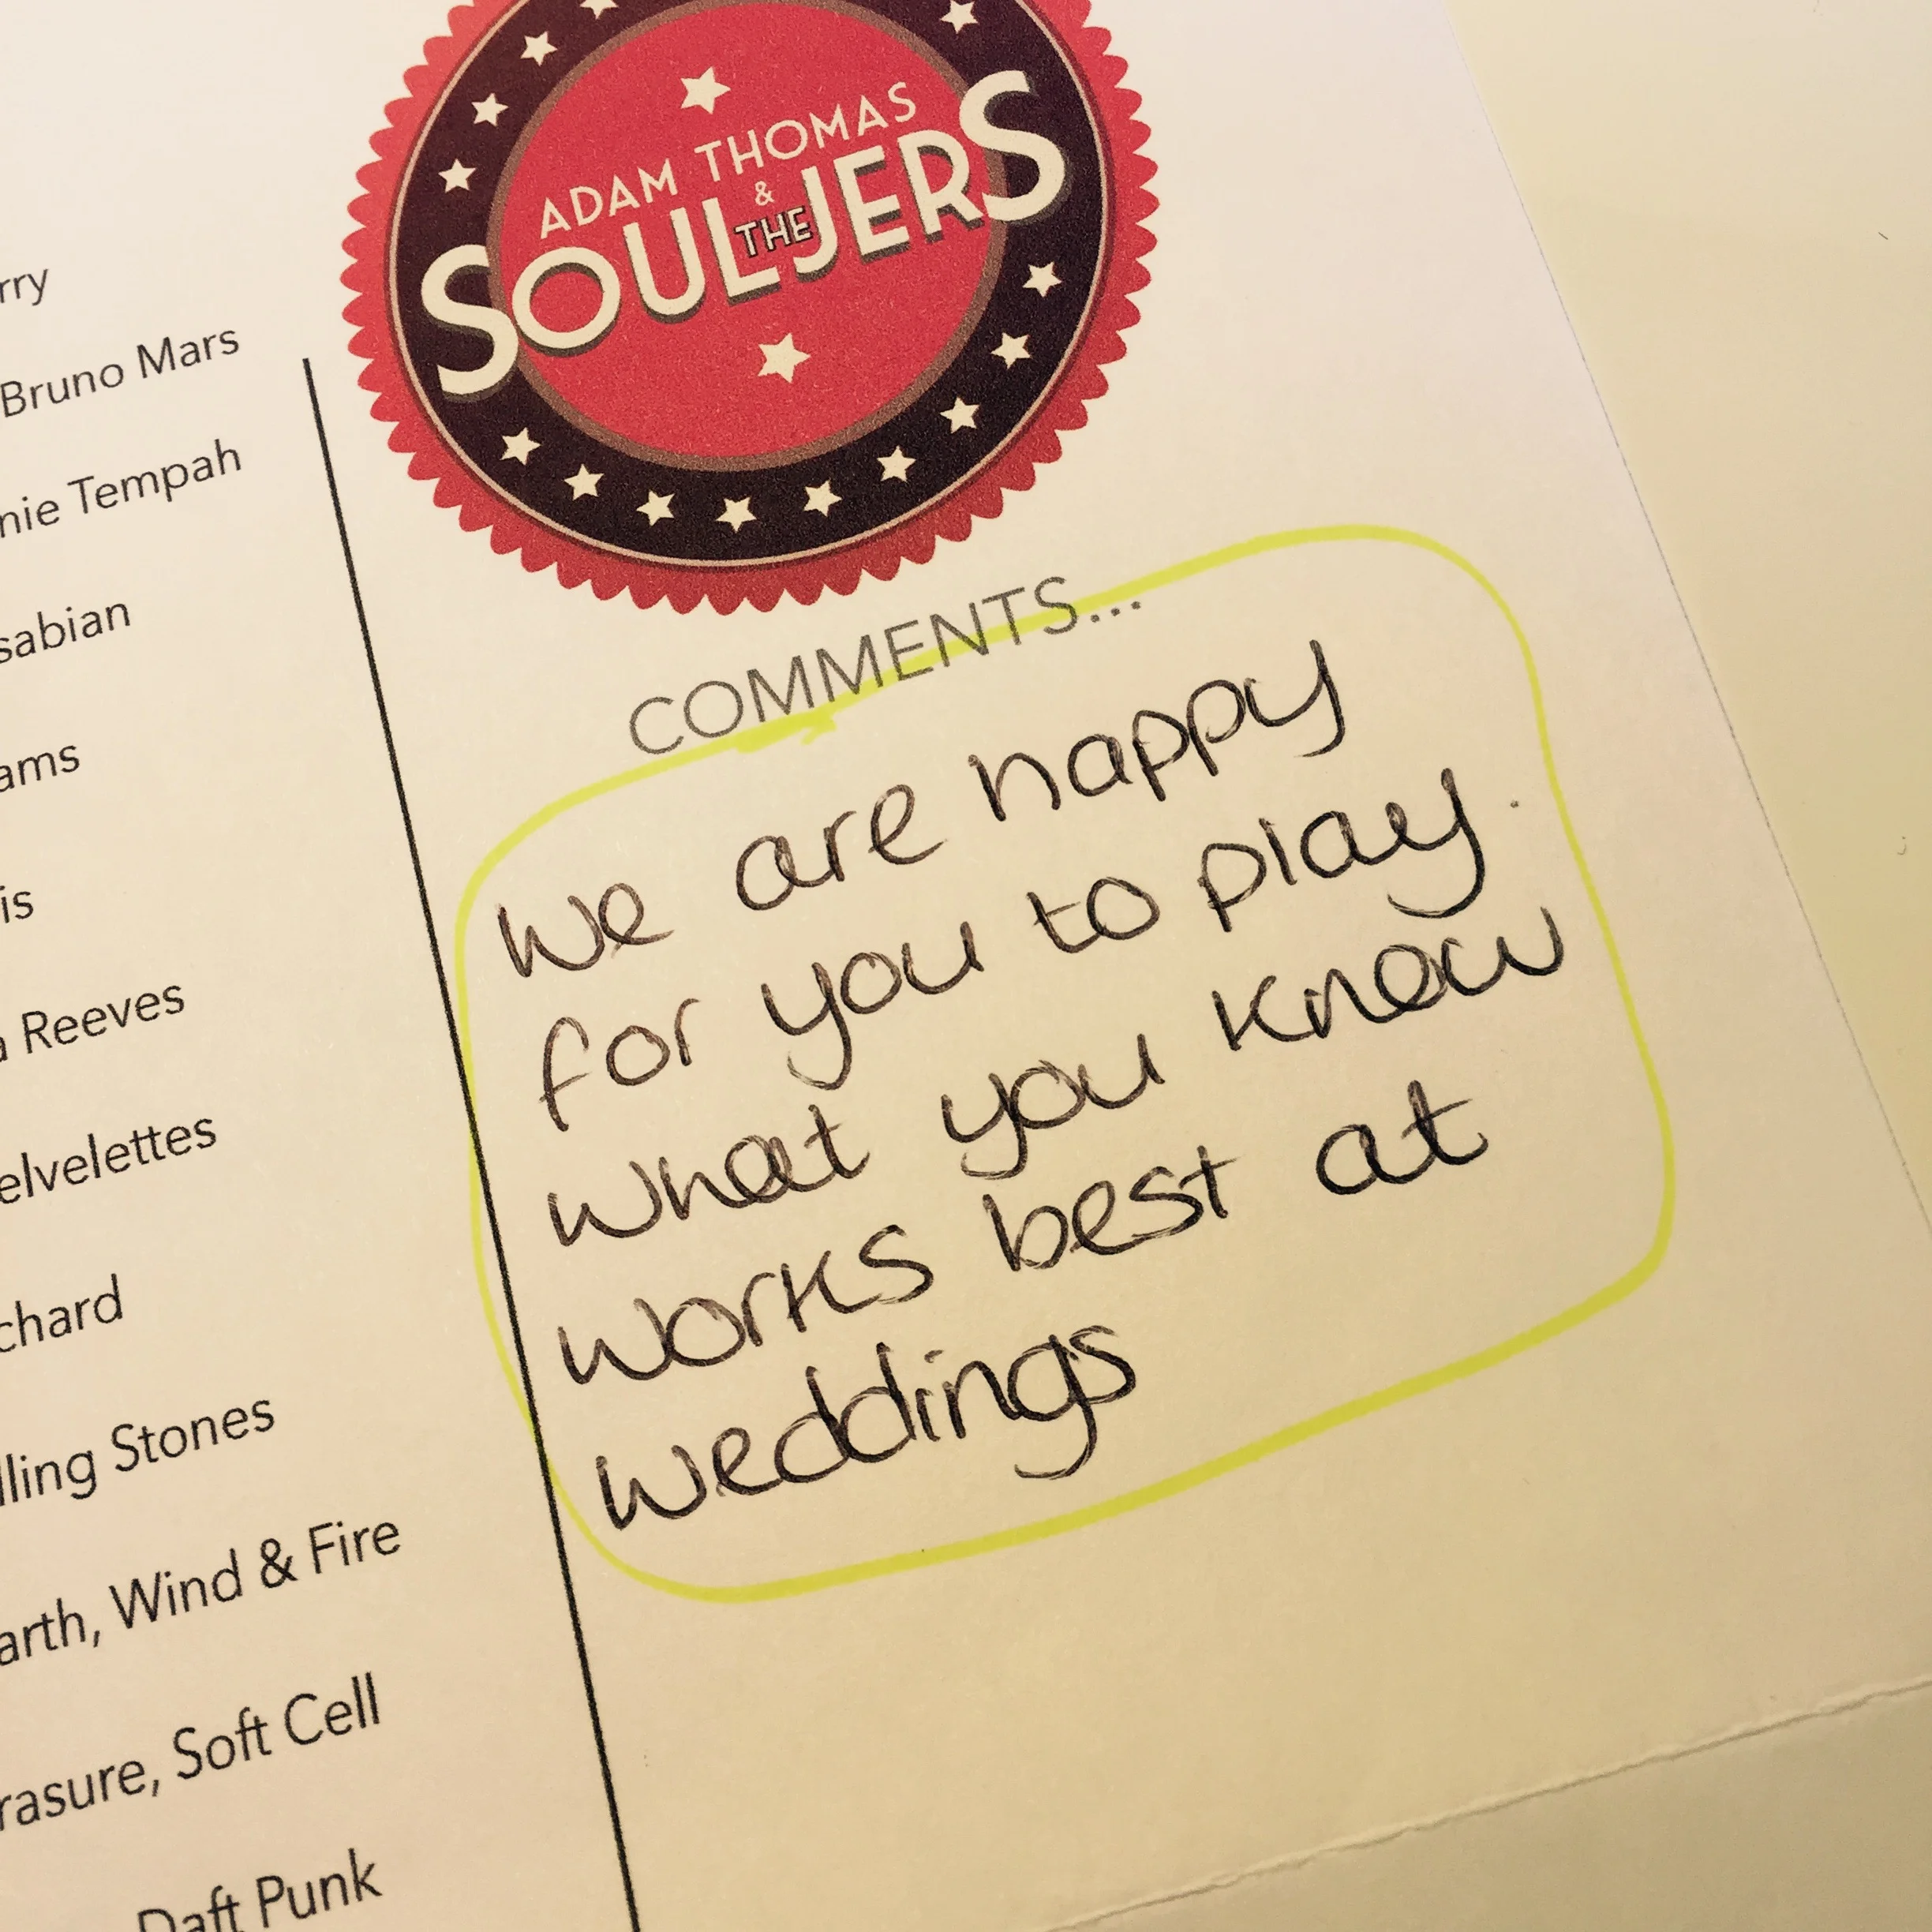 ADAM THOMAS
&
THE
SOULJERS
rry
Bruno Mars
nie Tempah
sabian
ams
is
a Reeves
elvelettes
chard
lling Stones
arth, Wind & Fire
rasure, Soft Cell
Daft Punk
COMMENTS...
We are happy
for you to play
what you know
works best at
weddings